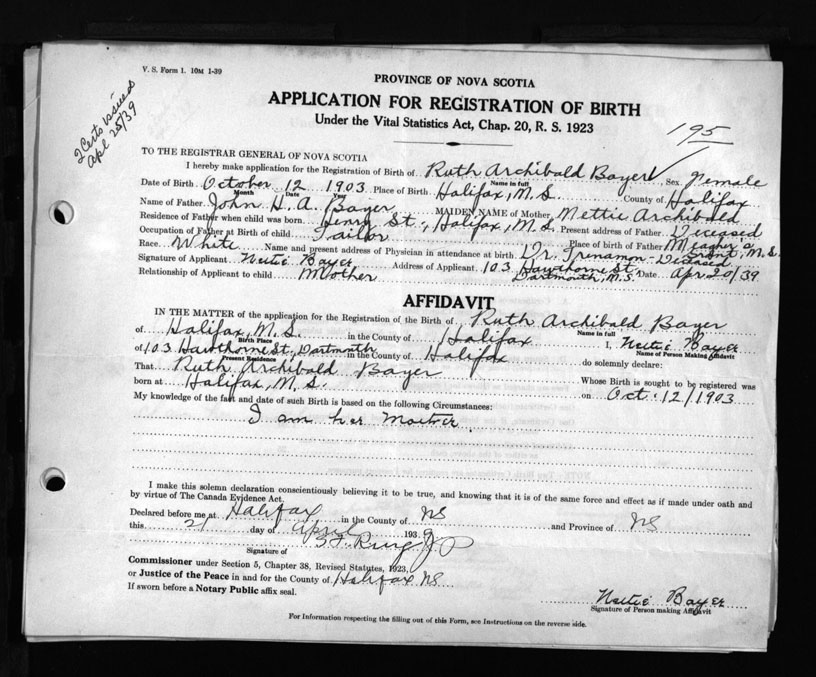 V. S. Form 1. 10M 1-39
2 Certs issued
Apl 25/39
PROVINCE OF NOVA SCOTIA
APPLICATION FOR REGISTRATION OF BIRTH
Under the Vital Statistics Act, Chap. 20, R. S. 1923
195
TO THE REGISTRAR GENERAL OF NOVA SCOTIA
I hereby make application for the Registration of Birth of Ruth Archibald Bayer Sex Female
Name in full
Date of Birth October 12 1903 Place of Birth Halifax, N.S. County of Halifax
Month Date Year
Name of Father John H. A. Bayer MAIDEN NAME of Mother Nettie Archibald
Residence of Father when child was born Henry St., Halifax, N.S. Present address of Father Deceased
Occupation of Father at Birth of child Tailor Place of birth of Father Meagher's Grant, N.S.
Race White Name and present address of Physician in attendance at birth Dr. Trenamon - Deceased
Signature of Applicant Nettie Bayer Address of Applicant 103 Hawthorne St. Dartmouth, N.S. Date Apr 20/39
Relationship of Applicant to child Mother
AFFIDAVIT
IN THE MATTER of the application for the Registration of the Birth of Ruth Archibald Bayer
Name in full
of Halifax, N.S. in the County of Halifax I, Nettie Bayer
Birth Place Name of Person Making Affidavit
of 103 Hawthorne St., Dartmouth in the County of Halifax do solemnly declare:
Present Residence
That Ruth Archibald Bayer Whose Birth is sought to be registered was
born at Halifax, N.S. on Oct. 12/1903
My knowledge of the fact and date of such Birth is based on the following Circumstances:
I am her Mother
I make this solemn declaration conscientiously believing it to be true, and knowing that it is of the same force and effect as if made under oath and
by virtue of The Canada Evidence Act.
Declared before me at Halifax in the County of NS and Province of NS
this 21 day of April 1939
J P
Signature of
Commissioner under Section 5, Chapter 38, Revised Statutes, 1923,
or Justice of the Peace in and for the County of Halifax NS
If sworn before a Notary Public affix seal.
Nettie Bayer
Signature of Person making Affidavit
For Information respecting the filling out of this Form, see Instructions on the reverse side.